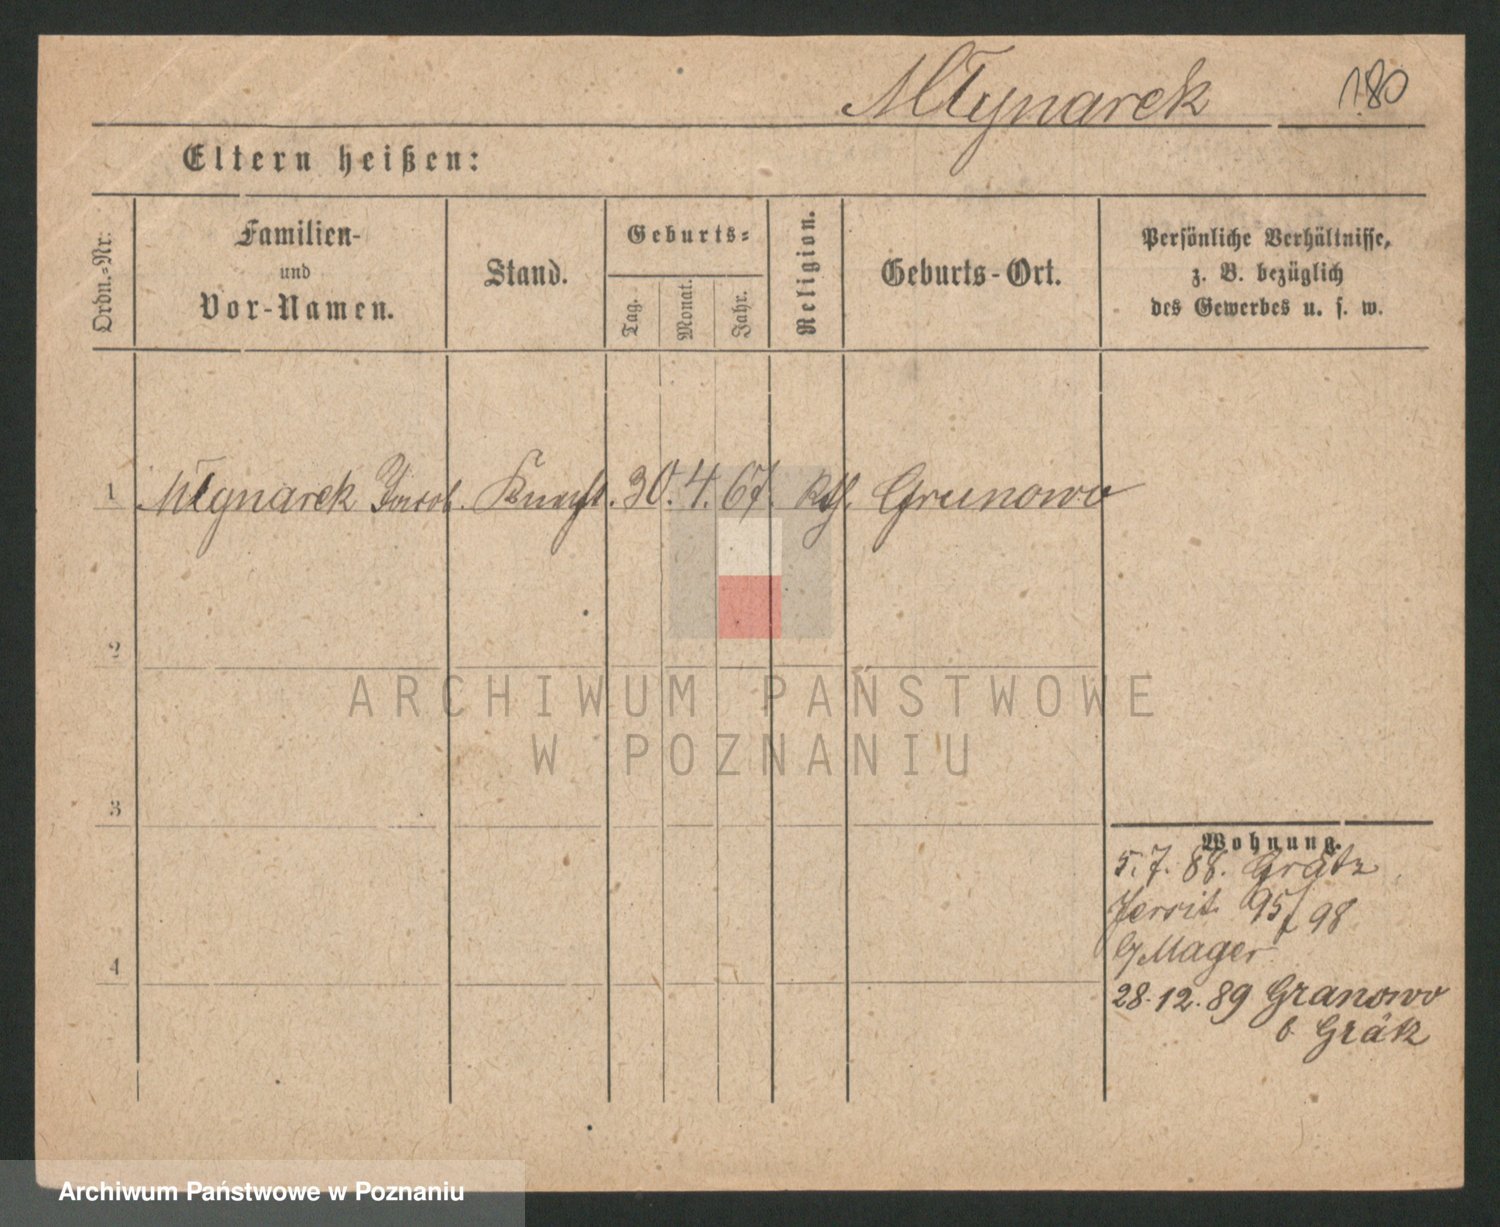 Młynarek 180
Eltern heißen:
Ordn.-Nr.
Familien-
und
Vor-Namen.
Stand.
Geburts-
Tag.
Monat.
Jahr.
Religion.
Geburts-Ort.
Persönliche Verhältnisse,
z. B. bezüglich
des Gewerbes u. s. w.
1 Młynarek Jacob. Knecht. 30. 4. 67. kth. Grunowo
2
ARCHIWUM PAŃSTWOWE
W POZNANIU
3
Wohnung.
5. 7. 88. Grätz
95/98
Mager
4
28. 12. 89 Granowo
b. Grätz
Archiwum Państwowe w Poznaniu